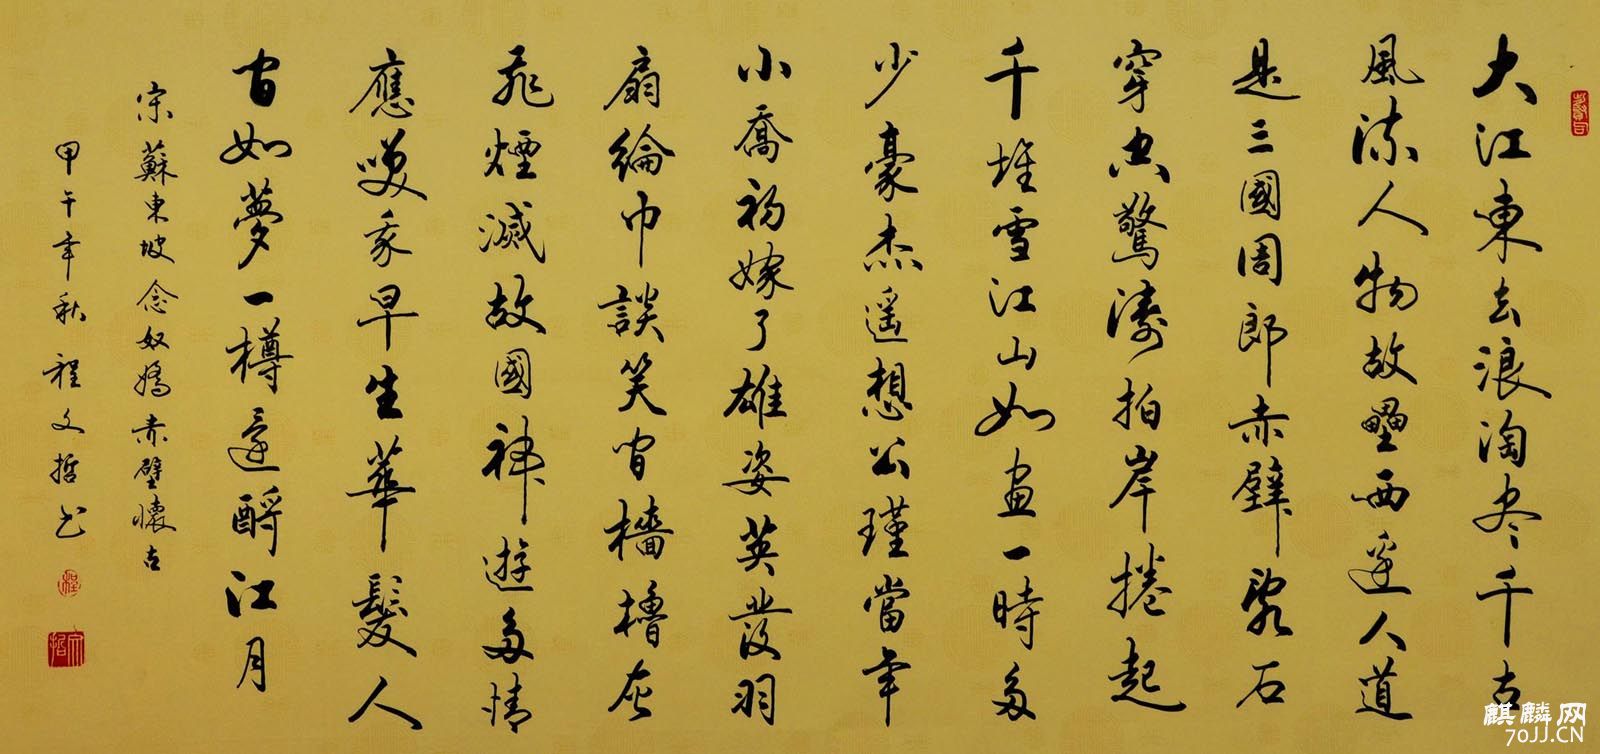 大江東去浪淘尽千古
風流人物故壘西邊人道
是三國周郎赤壁亂石
穿空驚濤拍岸捲起
千堆雪江山如畫一時多
少豪杰遥想公瑾當年
小喬初嫁了雄姿英發羽
扇綸巾談笑間檣櫓灰
飛煙滅故國神遊多情
應咲我早生華髮人
間如夢一樽還酹江月
宋蘇東坡念奴嬌赤壁懷古
甲午年秋程文哲书
程
文哲
麒麟网
70JJ.CN